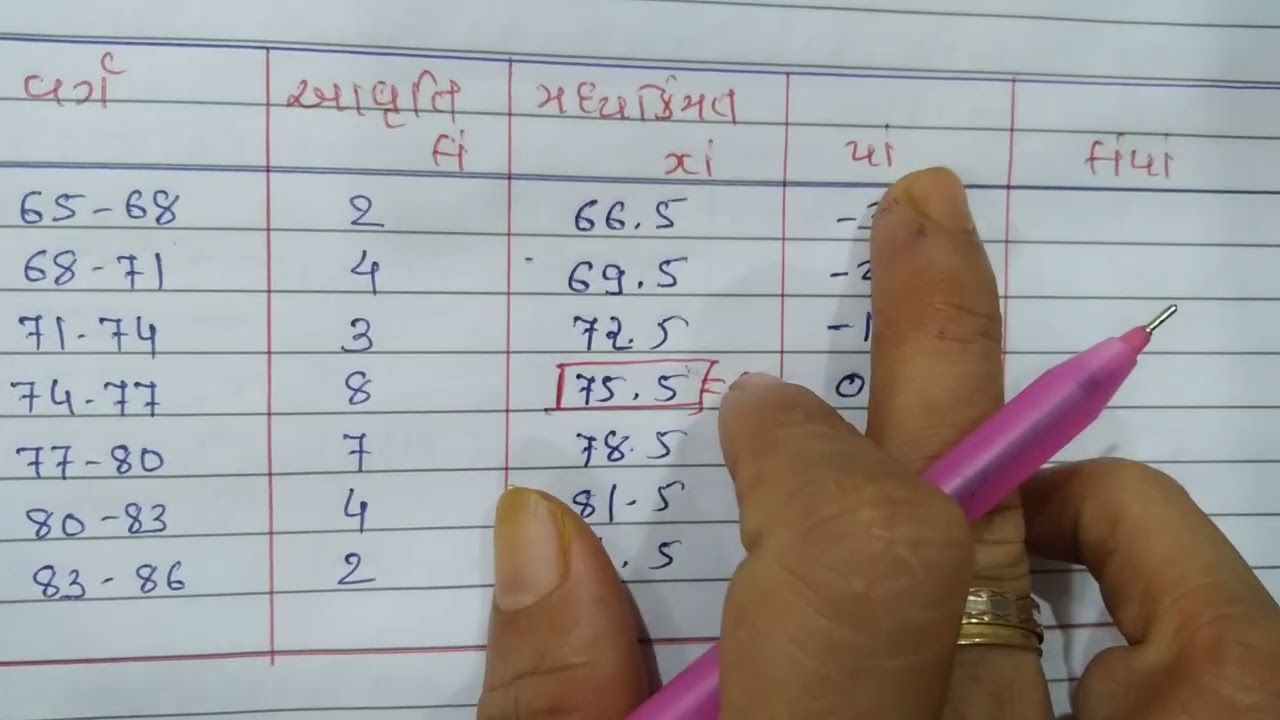 વર્ગ આવૃતિ મધ્યકિંમત
fi xi પi fiપi
65-68 2 66.5
68-71 4 69.5 -2
71-74 3 72.5 -1
74-77 8 75.5 = 0
77-80 7 78.5
80-83 4 81.5
83-86 2 .5